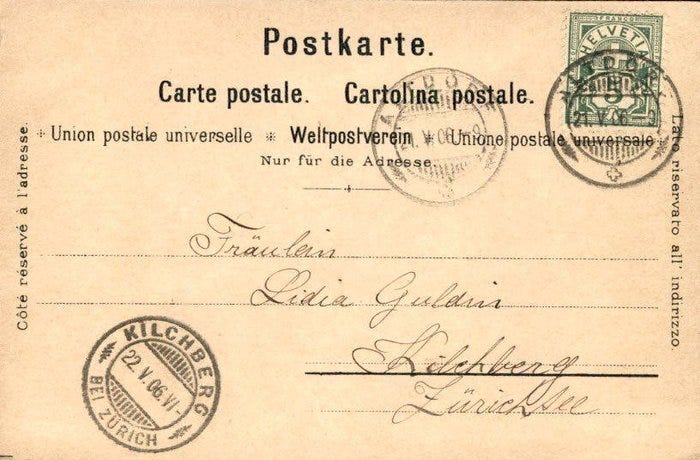 Postkarte.
Carte postale. Cartolina postale.
Union postale universelle * Weltpostverein * Unione postale universale
Nur für die Adresse.
Côté réservé à l'adresse.
Lato riservato all' indirizzo.
FRANCO
HELVETIA
5
ALTDORF
21.V.06.-9
ALTDORF
21.V.06.-9
Fräulein
Lidia Guldin
Kilchberg
Zürichsee
KILCHBERG
22.V.06.VI-
BEI ZÜRICH